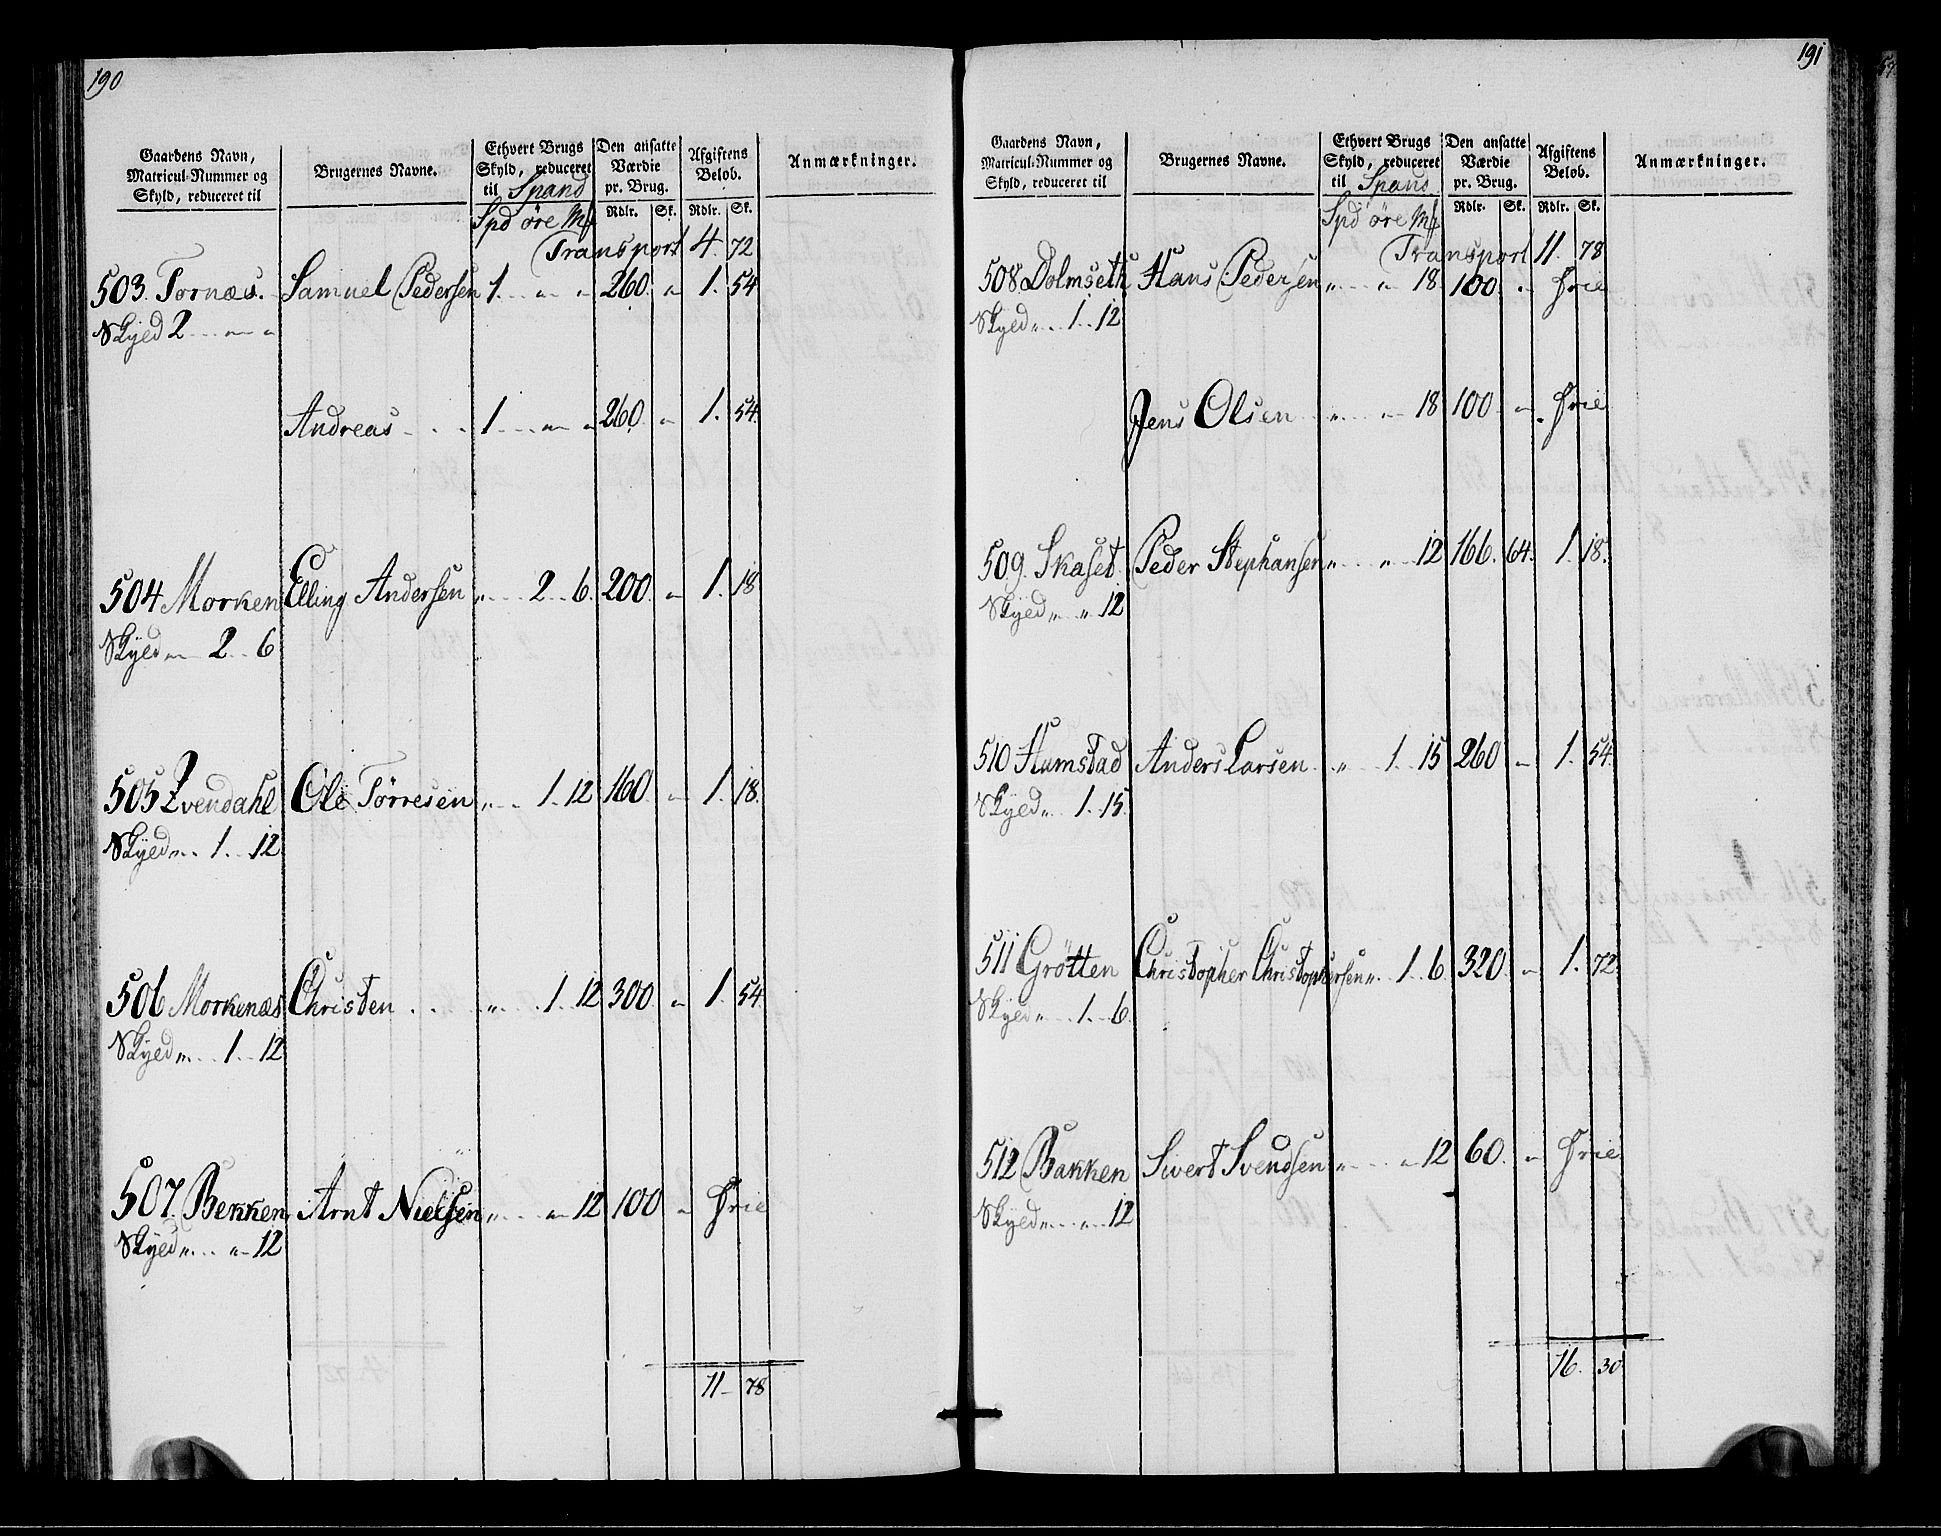 190
Gaardens Navn, Matricul-Nummer og Skyld, reduceret til | Brugernes Navne. | Ethvert Brugs Skyld, reduceret til Spand | Den ansatte Værdie pr. Brug. | Afgiftens Beløb. | Anmærkninger.
Spd øre Mk | Rdlr. | Sk. | Rdlr. | Sk.
Transport 4. 72
503. Tornæs. Samuel Pedersen 1. " " 260. " 1. 54
Skyed 2 " "
Andreas 1. " " 260. " 1. 54.
504 Morken Elling Andersen " 2. 6. 200. " 1. 18
Skyed " 2. 6
505 Evendahl Ole Torresen " 1. 12 160. " 1. 18.
Skyed " 1. 12
506 Morkenæs Christen " 1. 12 300. " 1. 54.
Skyed " 1. 12
507. Bekken Arnt Nielsen " " 12 100 " Frie
Skyed " " 12
11 78
191
Gaardens Navn, Matricul-Nummer og Skyld, reduceret til | Brugernes Navne. | Ethvert Brugs Skyld, reduceret til Spans | Den ansatte Værdie pr. Brug. | Afgiftens Beløb. | Anmærkninger.
Spd øre Mk | Rdlr. | Sk. | Rdlr. | Sk.
Transport 11. 78
508 Dolmseth Hans Pedersen " " 18 100. " Frie
Skyed " 1. 12
Jens Olsen " " 18 100 " Frie
509. Skaset Peder Stephansen " " 12 166. 64. 1. 18.
Skyed " " 12
510 Humstad Anders Larsen " 1. 15 260 " 1. 54.
Skyed " 1. 15.
511 Grötten Christopher Christophersen " 1. 6. 320. " 1. 72.
Skyed " 1. 6.
512 Bakken Sivert Svendsen " " 12 60. " Frie
Skyed " " 12
16. 30